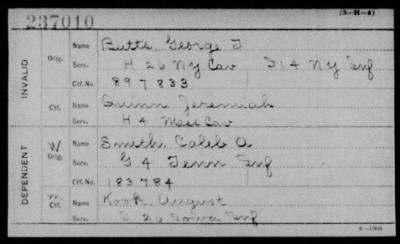 (3—H—4)
237010
INVALID
Orig.
Name Butts, George T
Serv. H 26 N Y Cav S 14 N Y Inf
Ctf. No. 897833
Ctf.
Name Quinn Jeremiah
Serv. H 4 Mass Cav
DEPENDENT
W Orig.
Name Smith, Caleb A
Serv. G 4 Tenn Inf
Ctf. No. 183784
Ctf.
Name Kook, August
Serv. 26 Iowa Inf